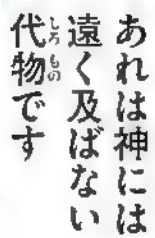 あれは神には
遠く及ばない
代物です
しろもの